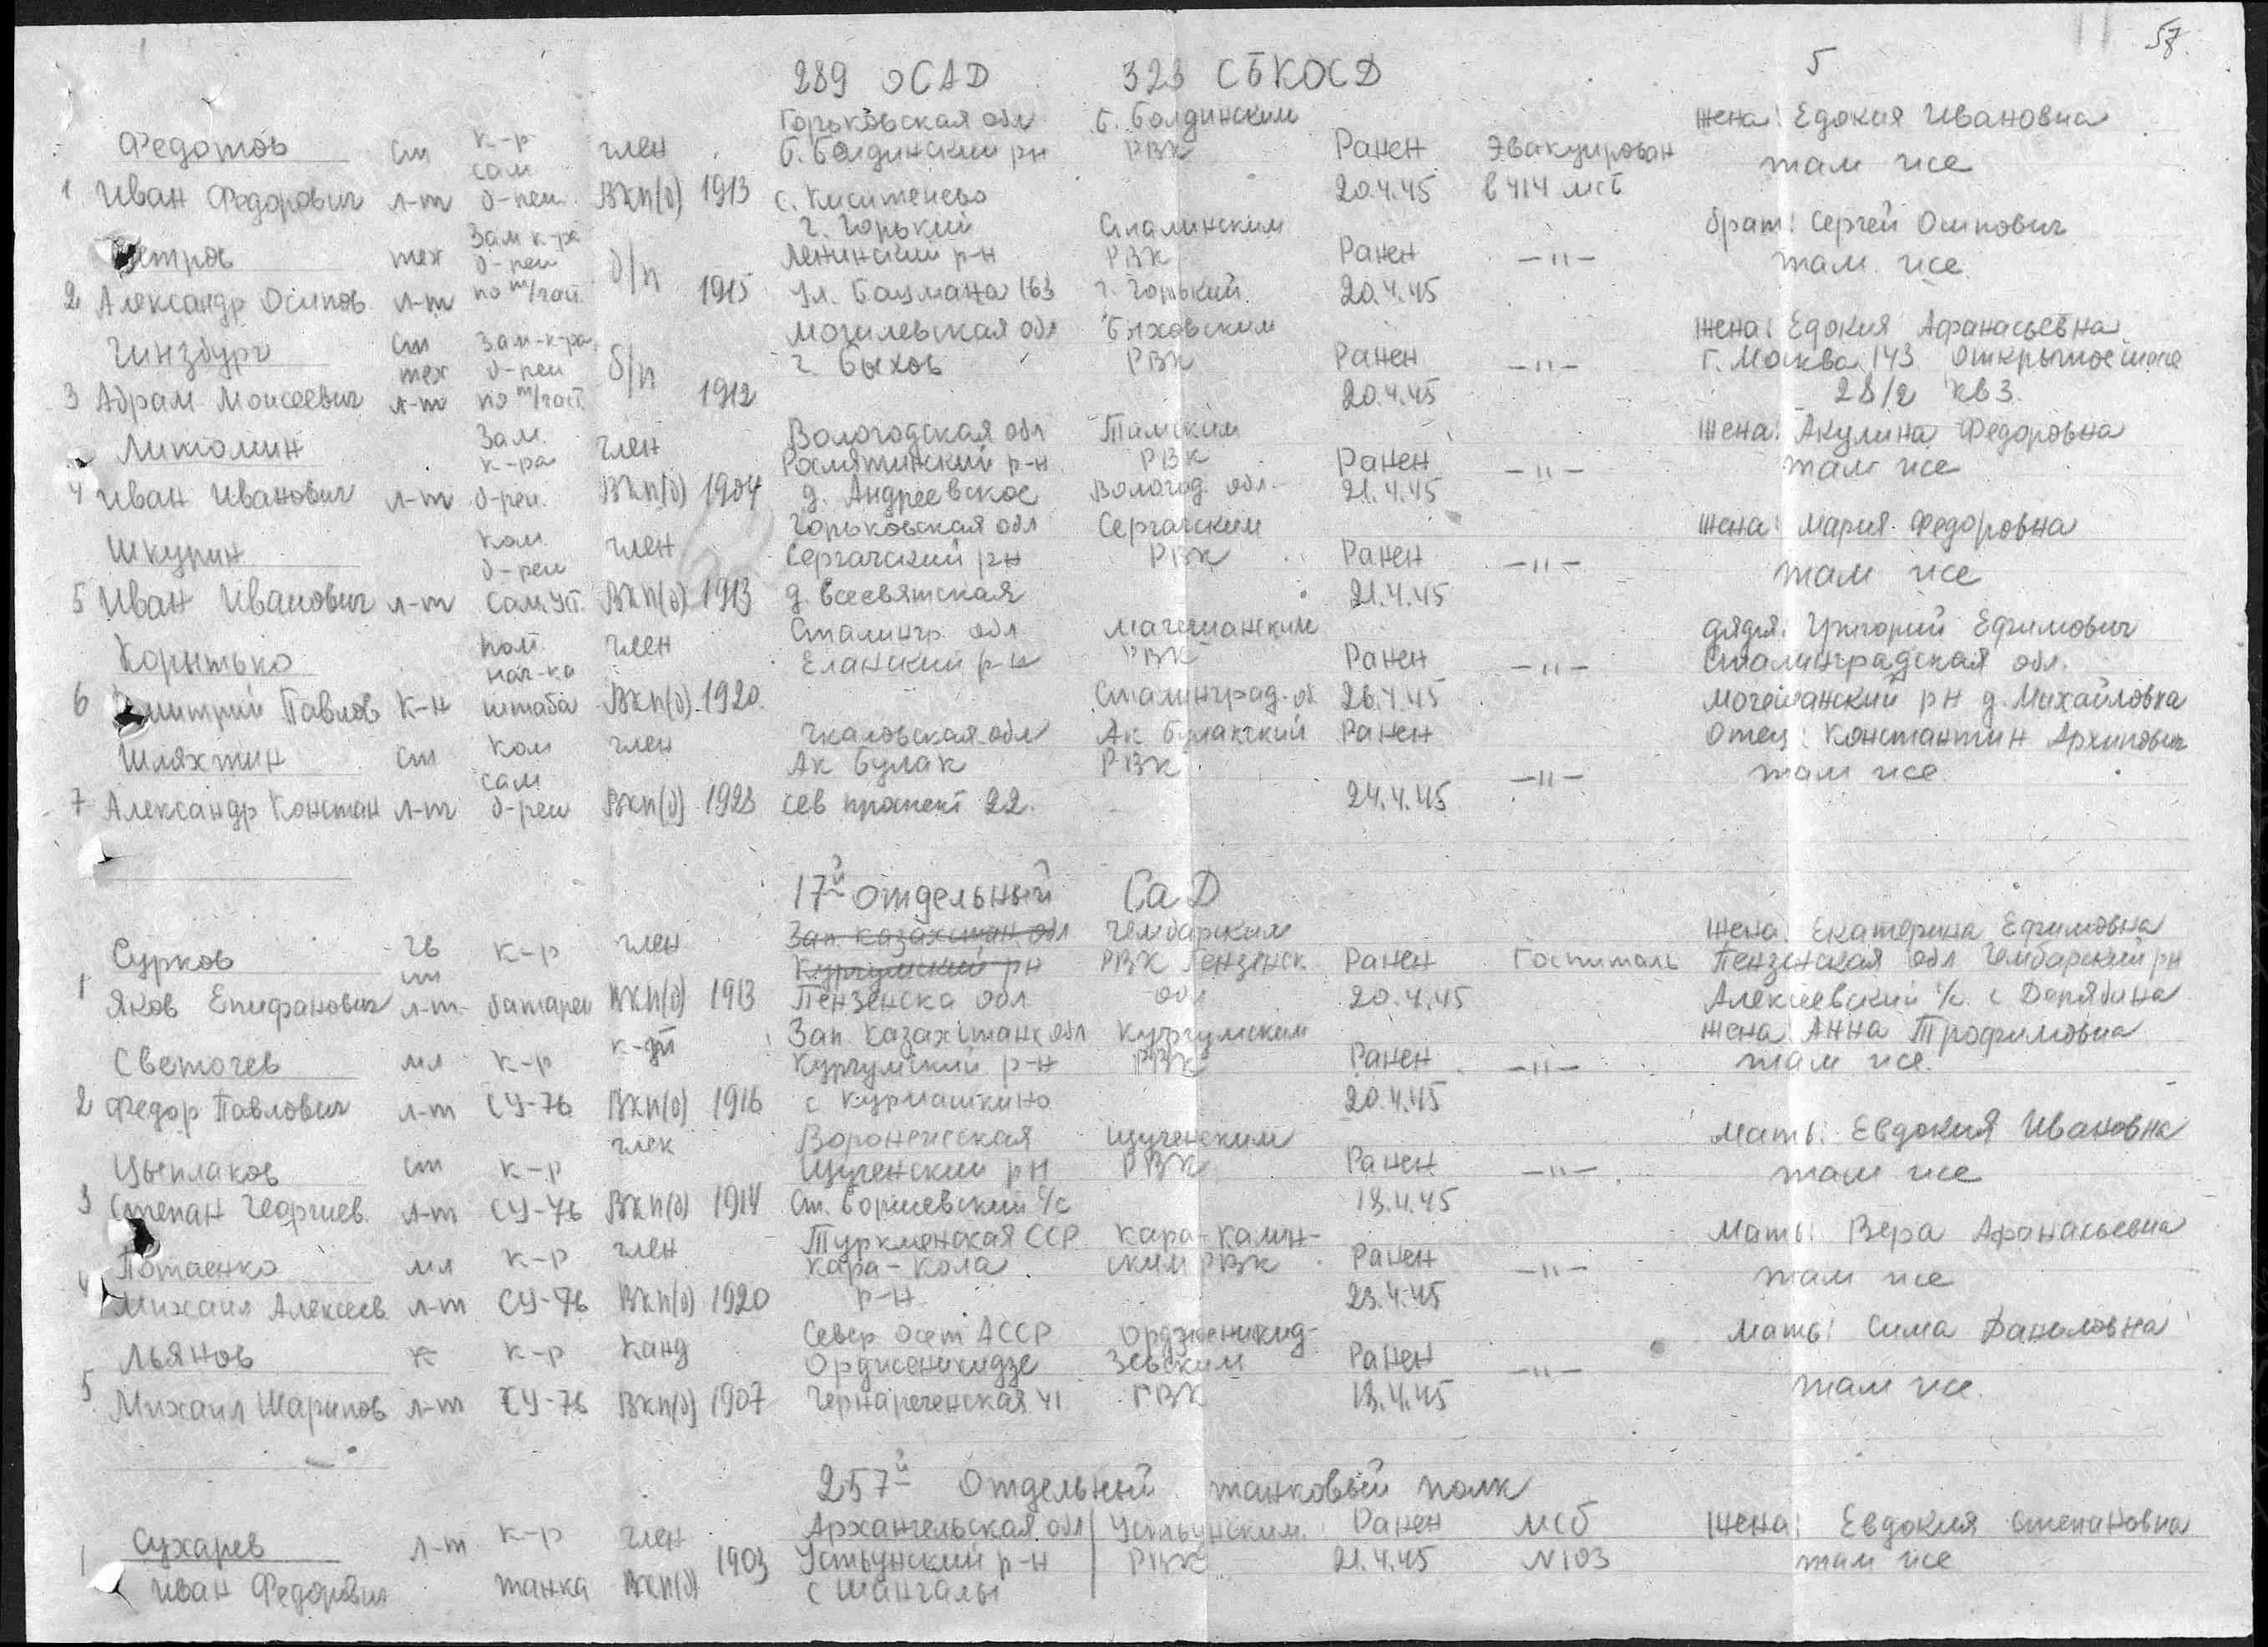 57
5
289 оСАД 323 СБКОСД
Горьковская обл Б. Болдинским жена: Едокия Ивановна
Федотов ст к-р член Б. Болдинский рн РВК Ранен Эвакуирован там же
сам
1 Иван Федорович л-т б-реи ВКП(б) 1913 с. 20.4.45 в 414 мсб
Зам к-ра г. Горький Сталинским брат: Сергей Осипович
тех б-реи б/п Ленинский р-н РВК Ранен —"— там же
2 Александр Осипов л-т по т/част 1915 ул. Баумана 163 г. Горький 20.4.45
Гинзбург ст Зам-к-ра Могилевская обл Быховским жена: Едокия Афанасьевна
тех б-реи б/п г. Быхов РВК Ранен —"— г. Москва 143 открытое шоссе
3 Абрам Моисеевич л-т по т/част 1912 20.4.45 28/2 кв 3.
Литомин Зам. член Вологодская обл жена: Акулина Федоровна
к-ра р-н РВК Ранен —"— там же
4 Иван Иванович л-т б-реи. ВКП(б) 1904 д. Андреевское Вологод. обл. 21.4.45
Горьковская обл Сергачским жена: Мария Федоровна
Шкурин ком член Сергачский рн РВК Ранен —"— там же
б-реи
5 Иван Иванович л-т сам.уст. ВКП(б) 1913 д. Всесвятская 21.4.45
пом член Сталингр. обл дядя: Григорий Ефимович
Корытько нач-ка Еланский р-н РВК Ранен —"— Сталинградская обл.
6 Дмитрий Павлов К-н штаба ВКП(б) 1920 Сталинград. об 26.4.45 рн д. Михайловка
Шляхтин ст ком член Чкаловская обл Ак Булакский Ранен Отец: Константин Архипович
сам Ак Булак РВК —"— там же
7 Александр Констан л-т б-реи ВКП(б) 1923 сев проспект 22. 24.4.45
17й отдельный СаД
Сурков гв к-р член Зап. Казахстан. обл Чембарским жена: Екатерина Ефимовна
ст рн РВК Пензенск Ранен Госпиталь Пензенская обл Чембарский рн
1 Яков Епифанович л-т батареи ВКП(б) 1913 Пензенска обл обл 20.4.45 Алексеевский с/с с Дерябина
Зап Казахстанск обл жена: Анна Трофимовна
Светочев мл к-р р-н РВК Ранен —"— там же
2 Федор Павлович л-т СУ-76 ВКП(б) 1916 с 20.4.45
член Воронежская Щученским Мать: Евдокия Ивановна
Цыплаков ст к-р Щученский рн РВК Ранен —"— там же
3 Степан Георгиев. л-т СУ-76 ВКП(б) 1914 Ст. с/с 18.4.45
Потаенко мл к-р член Туркменская ССР Кара-Калин- Мать: Вера Афанасьевна
Кара-Кола ским РВК Ранен —"— там же
4 Михаил Алексеев л-т СУ-76 ВКП(б) 1920 р-н 23.4.45
Север Осет АССР Орджоникид- Мать: Сима Даниловна
Льянов к-р Канд Орджоникидзе зевским Ранен —"—
5 Михаил Шарипов л-т СУ-76 ВКП(б) 1907 Чернареченская 41 РВК 18.4.45 там же.
257й Отдельный танковый полк
Сухарев л-т к-р член Архангельская обл Устьунским Ранен МСБ жена: Евдокия Степановна
1 1903 Устьунский р-н РВК 21.4.45 N103 там же
Иван Федорович танка ВКП(б) с Шангалы